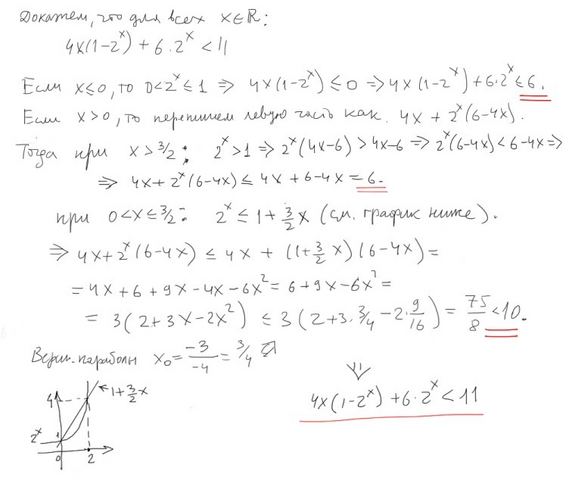 Докажем, что для всех x∈ℝ:
4x(1-2^x) + 6·2^x < 11
Если x≤0, то 0<2^x≤1 ⇒ 4x(1-2^x)≤0 ⇒ 4x(1-2^x)+6·2^x≤6.
Если x>0, то перепишем левую часть как 4x + 2^x(6-4x).
Тогда при x>3/2: 2^x>1 ⇒ 2^x(4x-6) > 4x-6 ⇒ 2^x(6-4x) < 6-4x ⇒
⇒ 4x+2^x(6-4x) ≤ 4x+6-4x = 6.
при 0<x≤3/2: 2^x ≤ 1+3/2x (см. график ниже).
⇒ 4x+2^x(6-4x) ≤ 4x + (1+3/2x)(6-4x) =
= 4x+6+9x-4x-6x^2 = 6+9x-6x^2 =
= 3(2+3x-2x^2) ≤ 3(2+3·3/4-2·9/16) = 75/8 < 10.
Верш. параболы x₀ = -3/-4 = 3/4
⇓
4x(1-2^x)+6·2^x < 11
1+3/2x
4
2^x
1
0
2